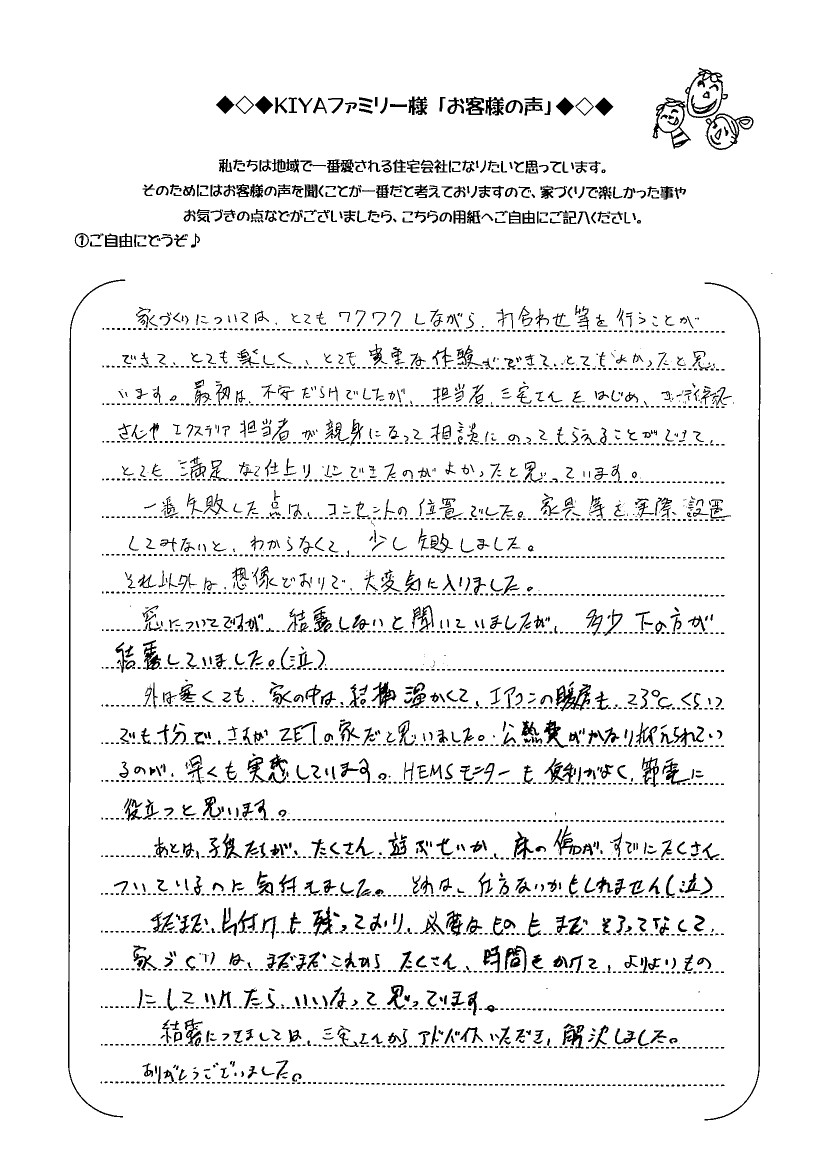 ◆◇◆KIYAファミリー様「お客様の声」◆◇◆
私たちは地域で一番愛される住宅会社になりたいと思っています。
そのためにはお客様の声を聞くことが一番だと考えておりますので、家づくりで楽しかった事や
お気づきの点などがございましたら、こちらの用紙へご自由にご記入ください。
①ご自由にどうぞ♪
家づくりについては、とてもワクワクしながら、打合わせ等を行うことが
できて、とても楽しく、とても貴重な体験ができて、とてもよかったと思
います。最初は、不安だらけでしたが、担当者、三宅さんをはじめ、
さんやエクステリア担当者が親身になって相談にのってもらえることができて、
とても満足なて仕上りにできたのがよかったと思っています。
一番失敗した点は、コンセントの位置でした。家具等を実際設置
してみないと、わからなくて、少し失敗しました。
それ以外は、想像どおりで、大変気に入りました。
窓についてですが、結露しないと聞いていましたが、多少下の方が
結露していました。(泣)
外は寒くても、家の中は、結構温かくて、エアコンの暖房も、23℃くらい
でも十分で、さすがZETの家だと思いました。公熱費がかなり抑えられてい
るのが、早くも実感しています。HEMSモニターも便利がよく、節電に
役立つと思います。
あとは、子供たちが、たくさん遊ぶせいか、床の傷が、すでにたくさん
ついているのに気付きました。それは、仕方ないかもしれません(泣)
まだまだ、片付けも残っており、必要なものもまだそろってなくて、
家づくりは、まだまだこれからたくさん、時間をかけて、よりよいもの
にしていけたら、いいなって思っています。
結露につきましては、三宅さんからアドバイスいただき、解決しました。
ありがとうございました。